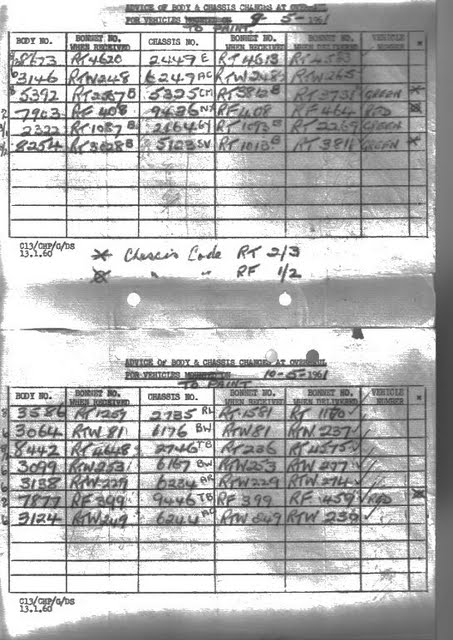 ADVICE OF BODY & CHASSIS CHANGES AT OVERHAUL
FOR VEHICLES 9-5-1961
TO PAINT
BODY NO. BONNET NO. WHEN RECEIVED CHASSIS NO. BONNET NO. WHEN RECEIVED BONNET NO. WHEN DELIVERED VEHICLE NUMBER *
8673 RT4620 2449 E RT4613 RT4583
3146 RTW248 6249 AC RTW248 RTW265
5392 5325 CM RT3812 B RT3731 GREEN *
7903 RF 408 9436 RF408 RF 464 RED
2322 RT1087 B 2164 RT1093 B RT2269 GREEN
8254 RT3028 B 5123 SV RT1013 B RT3811 GREEN *
C13/CHP/G/DS
13.1.60
* Chassis Code RT 2/3
" " RF 1/2
ADVICE OF BODY & CHASSIS CHANGES AT OVERHAUL
FOR VEHICLES 10-5-1961
TO PAINT
BODY NO. BONNET NO. WHEN RECEIVED CHASSIS NO. BONNET NO. WHEN RECEIVED BONNET NO. WHEN DELIVERED VEHICLE NUMBER *
3586 RT1259 2785 RL RT1581 RT 1160 ✓
3064 RTW 81 6176 BW RTW81 RTW 237 ✓
8442 RT4648 2746 TB RT236 RT4575 ✓
3099 RTW253 6167 BW RTW253 RTW 277 ✓
3138 RTW229 6234 AA RTW229 RTW 274 ✓
7877 RF 399 9446 TB RF 399 RF 459 ✓ RED
3124 RTW249 6244 AC RTW249 RTW 236 ✓
C13/CHP/G/DS
13.1.60